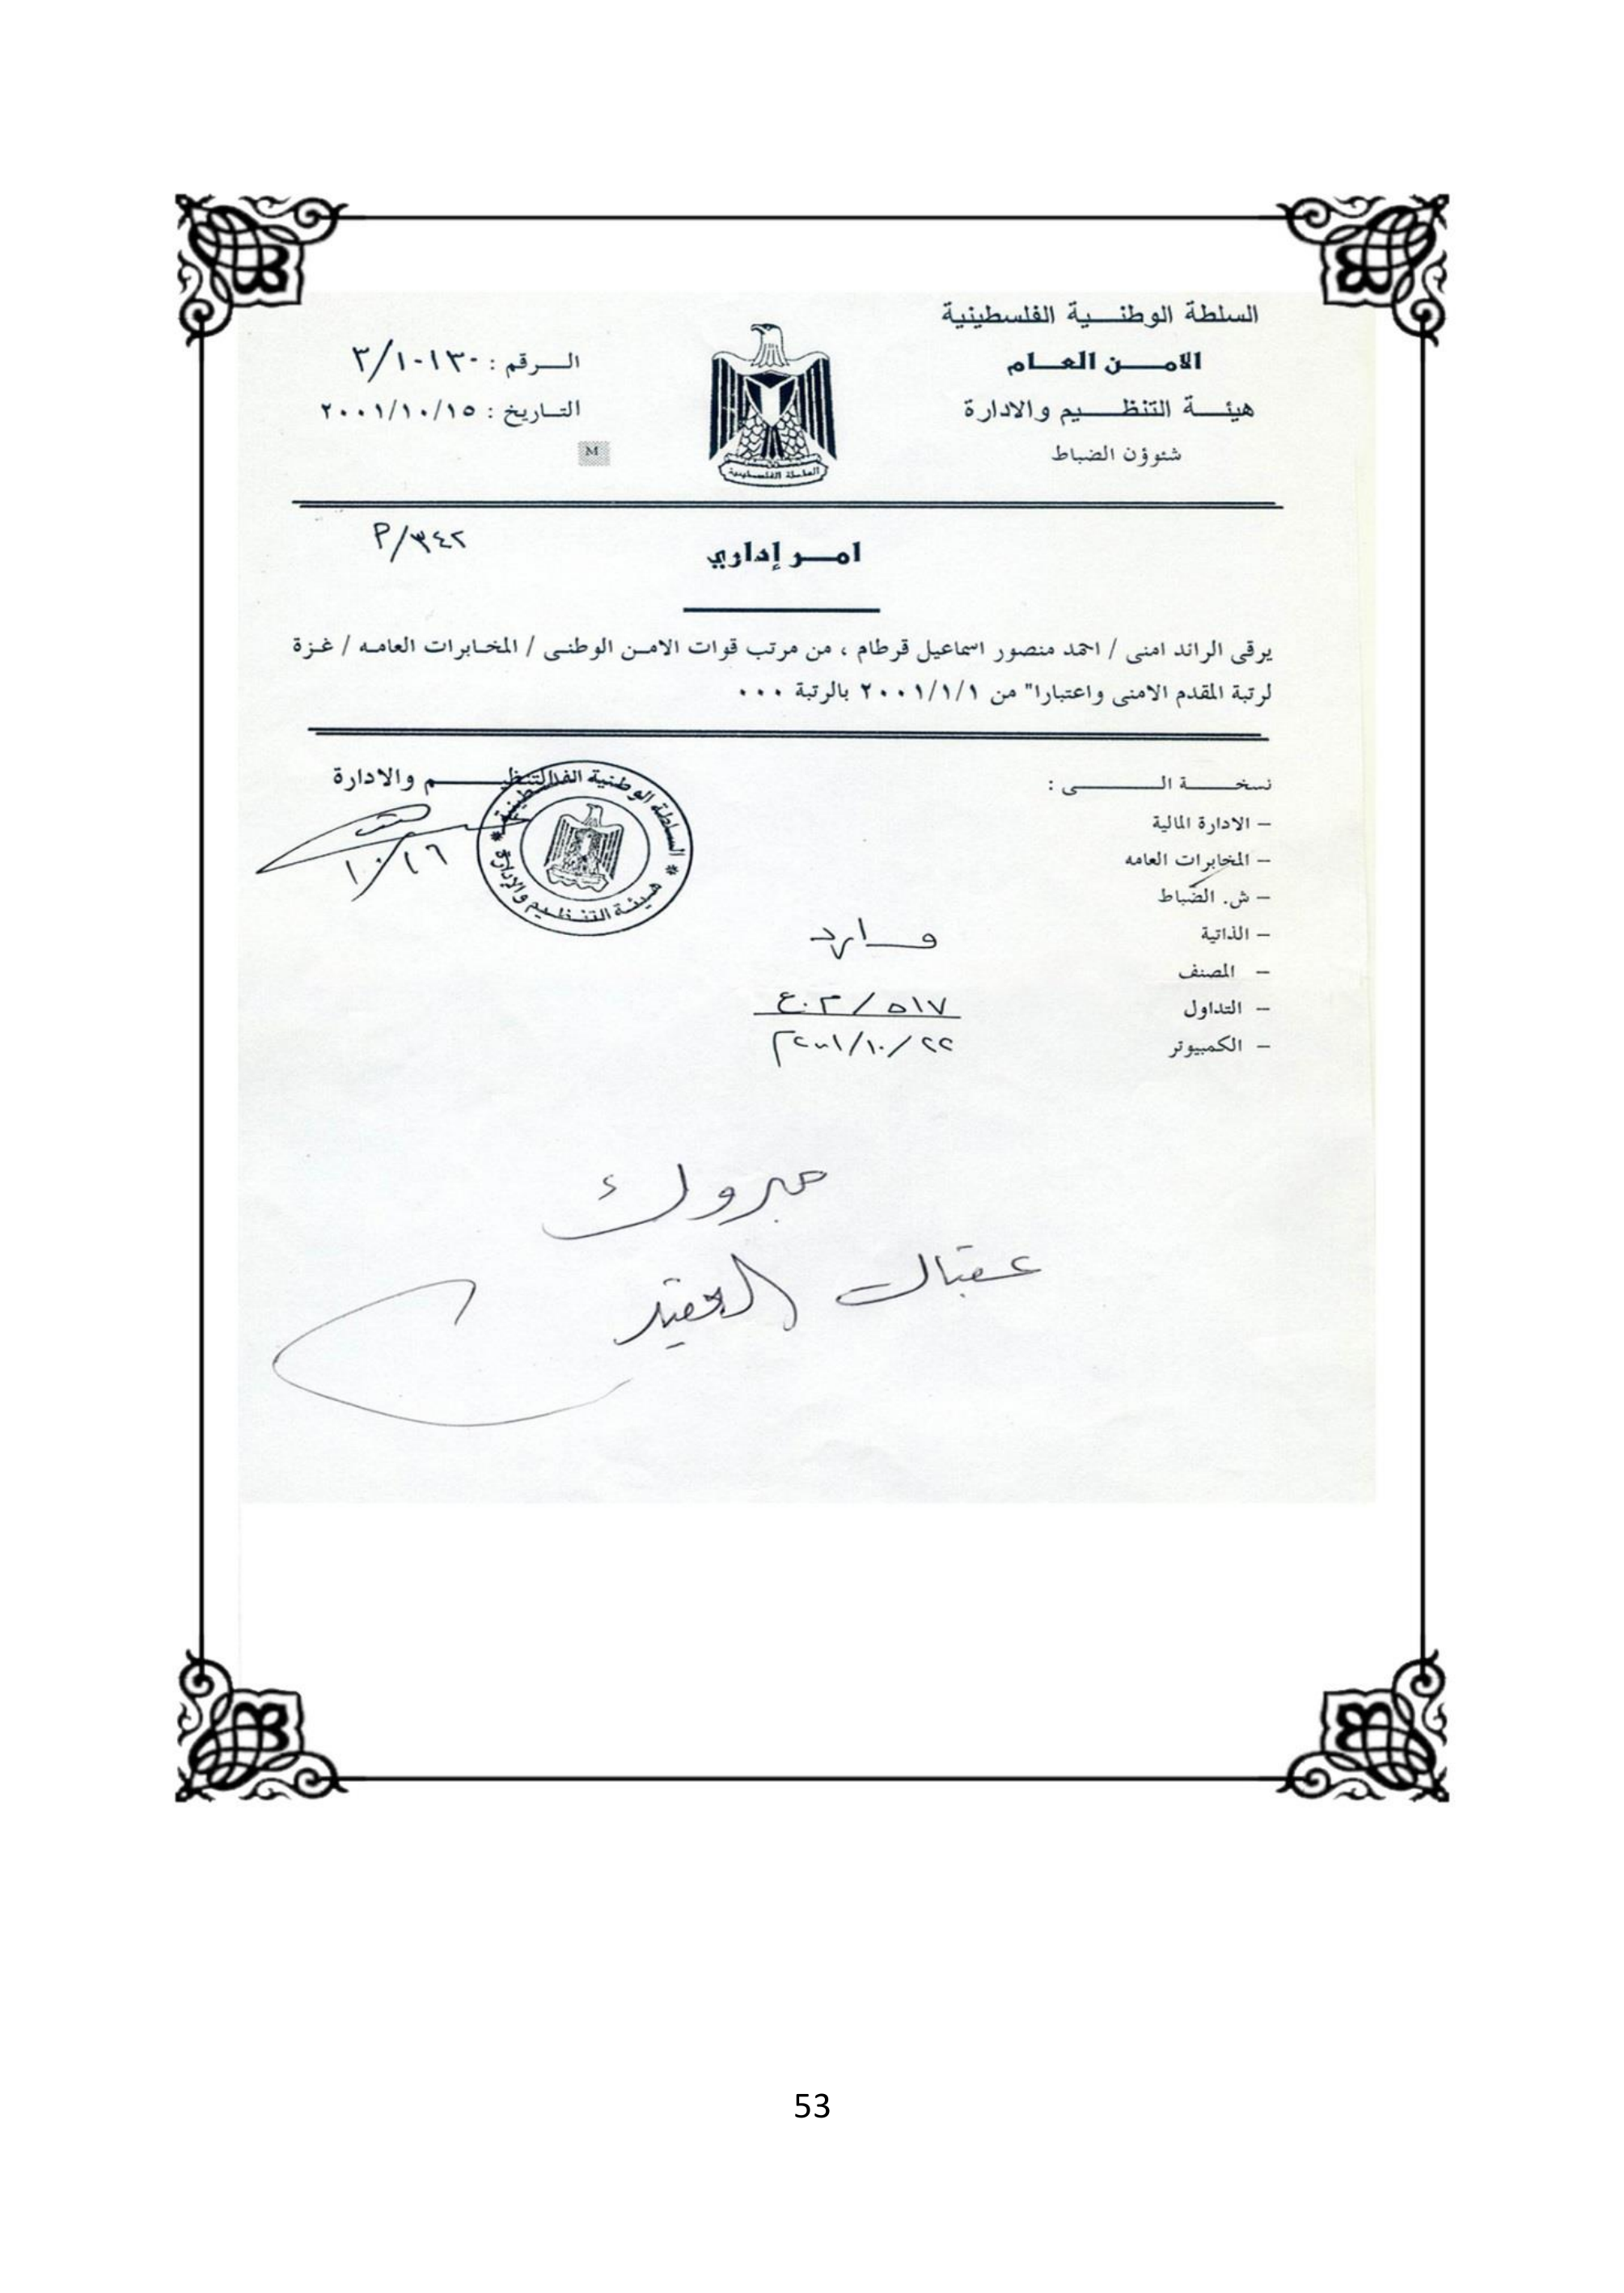 السلطة الوطنية الفلسطينية
الامن العام
هيئة التنظيم والادارة
شئوؤن الضباط
السلطة الفلسطينية
الرقم : ٣/١٠١٣٠
التاريخ : ٢٠٠١/١٠/١٥
M
٣٤٢/م
امر إداري
يرقى الرائد امنى / احمد منصور اسماعيل قرطام ، من مرتب قوات الامن الوطنى / المخابرات العامه / غزة
لرتبة المقدم الامنى واعتبارا" من ٢٠٠١/١/١ بالرتبة ٠٠٠
نسخة الى :
– الادارة المالية
– المخابرات العامه
– ش. الضباط
– الذاتية
– المصنف
– التداول
– الكمبيوتر
التنظيم والادارة
١٠/١٦
السلطة الوطنية الفلسطينية * هيئة التنظيم والإدارة *
وارد
٥١٧ / ٤٠٣
٢٢ /١٠/ ٢٠٠١م
مبروك
عقبال العقيد
53